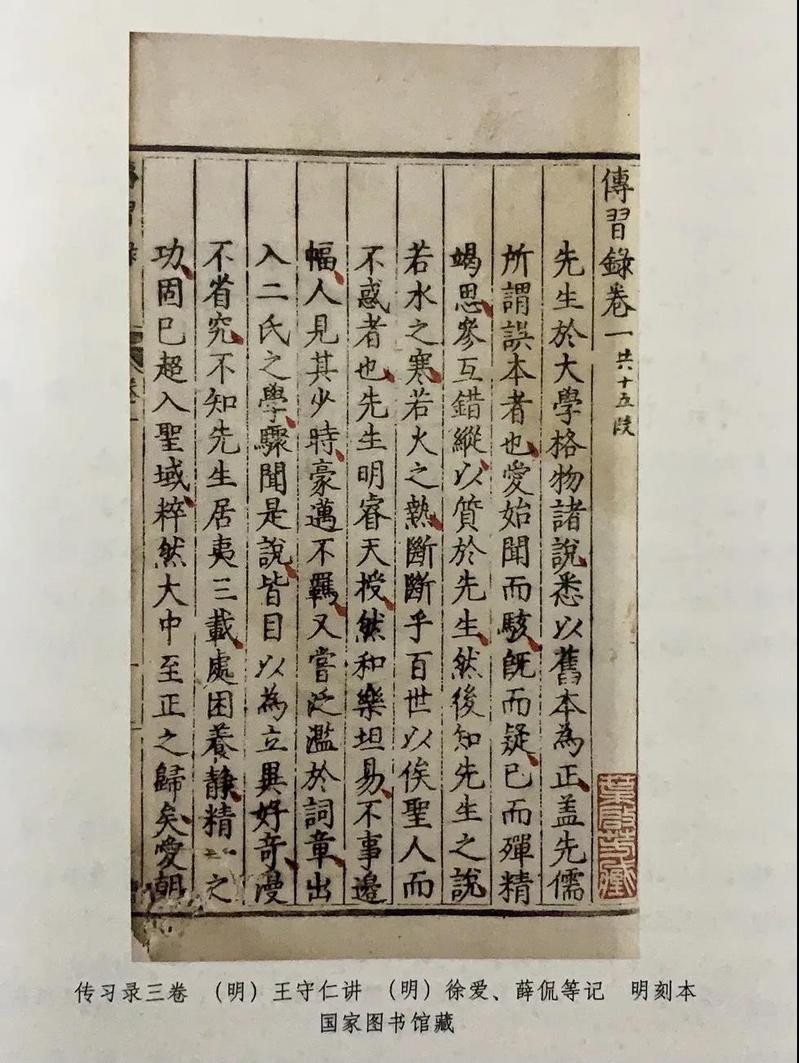 傳習錄卷一 共十五段
先生於大學格物諸說悉以舊本為正盖先儒
所謂誤本者也愛始聞而駭旣而疑已而殫精
竭思參互錯縱以質於先生然後知先生之說
若水之寒若火之熱斷斷乎百世以俟聖人而
不惑者也先生明睿天授然和樂坦易不事邉
幅人見其少時豪邁不羈又嘗泛濫於詞章出
入二氏之學驟聞是說皆目以為立異好奇漫
不省究不知先生居夷三載處困養静精一之
功固已超入聖域粹然大中至正之歸矣愛朝
传习录三卷 （明）王守仁讲 （明）徐爱、薛侃等记 明刻本
国家图书馆藏